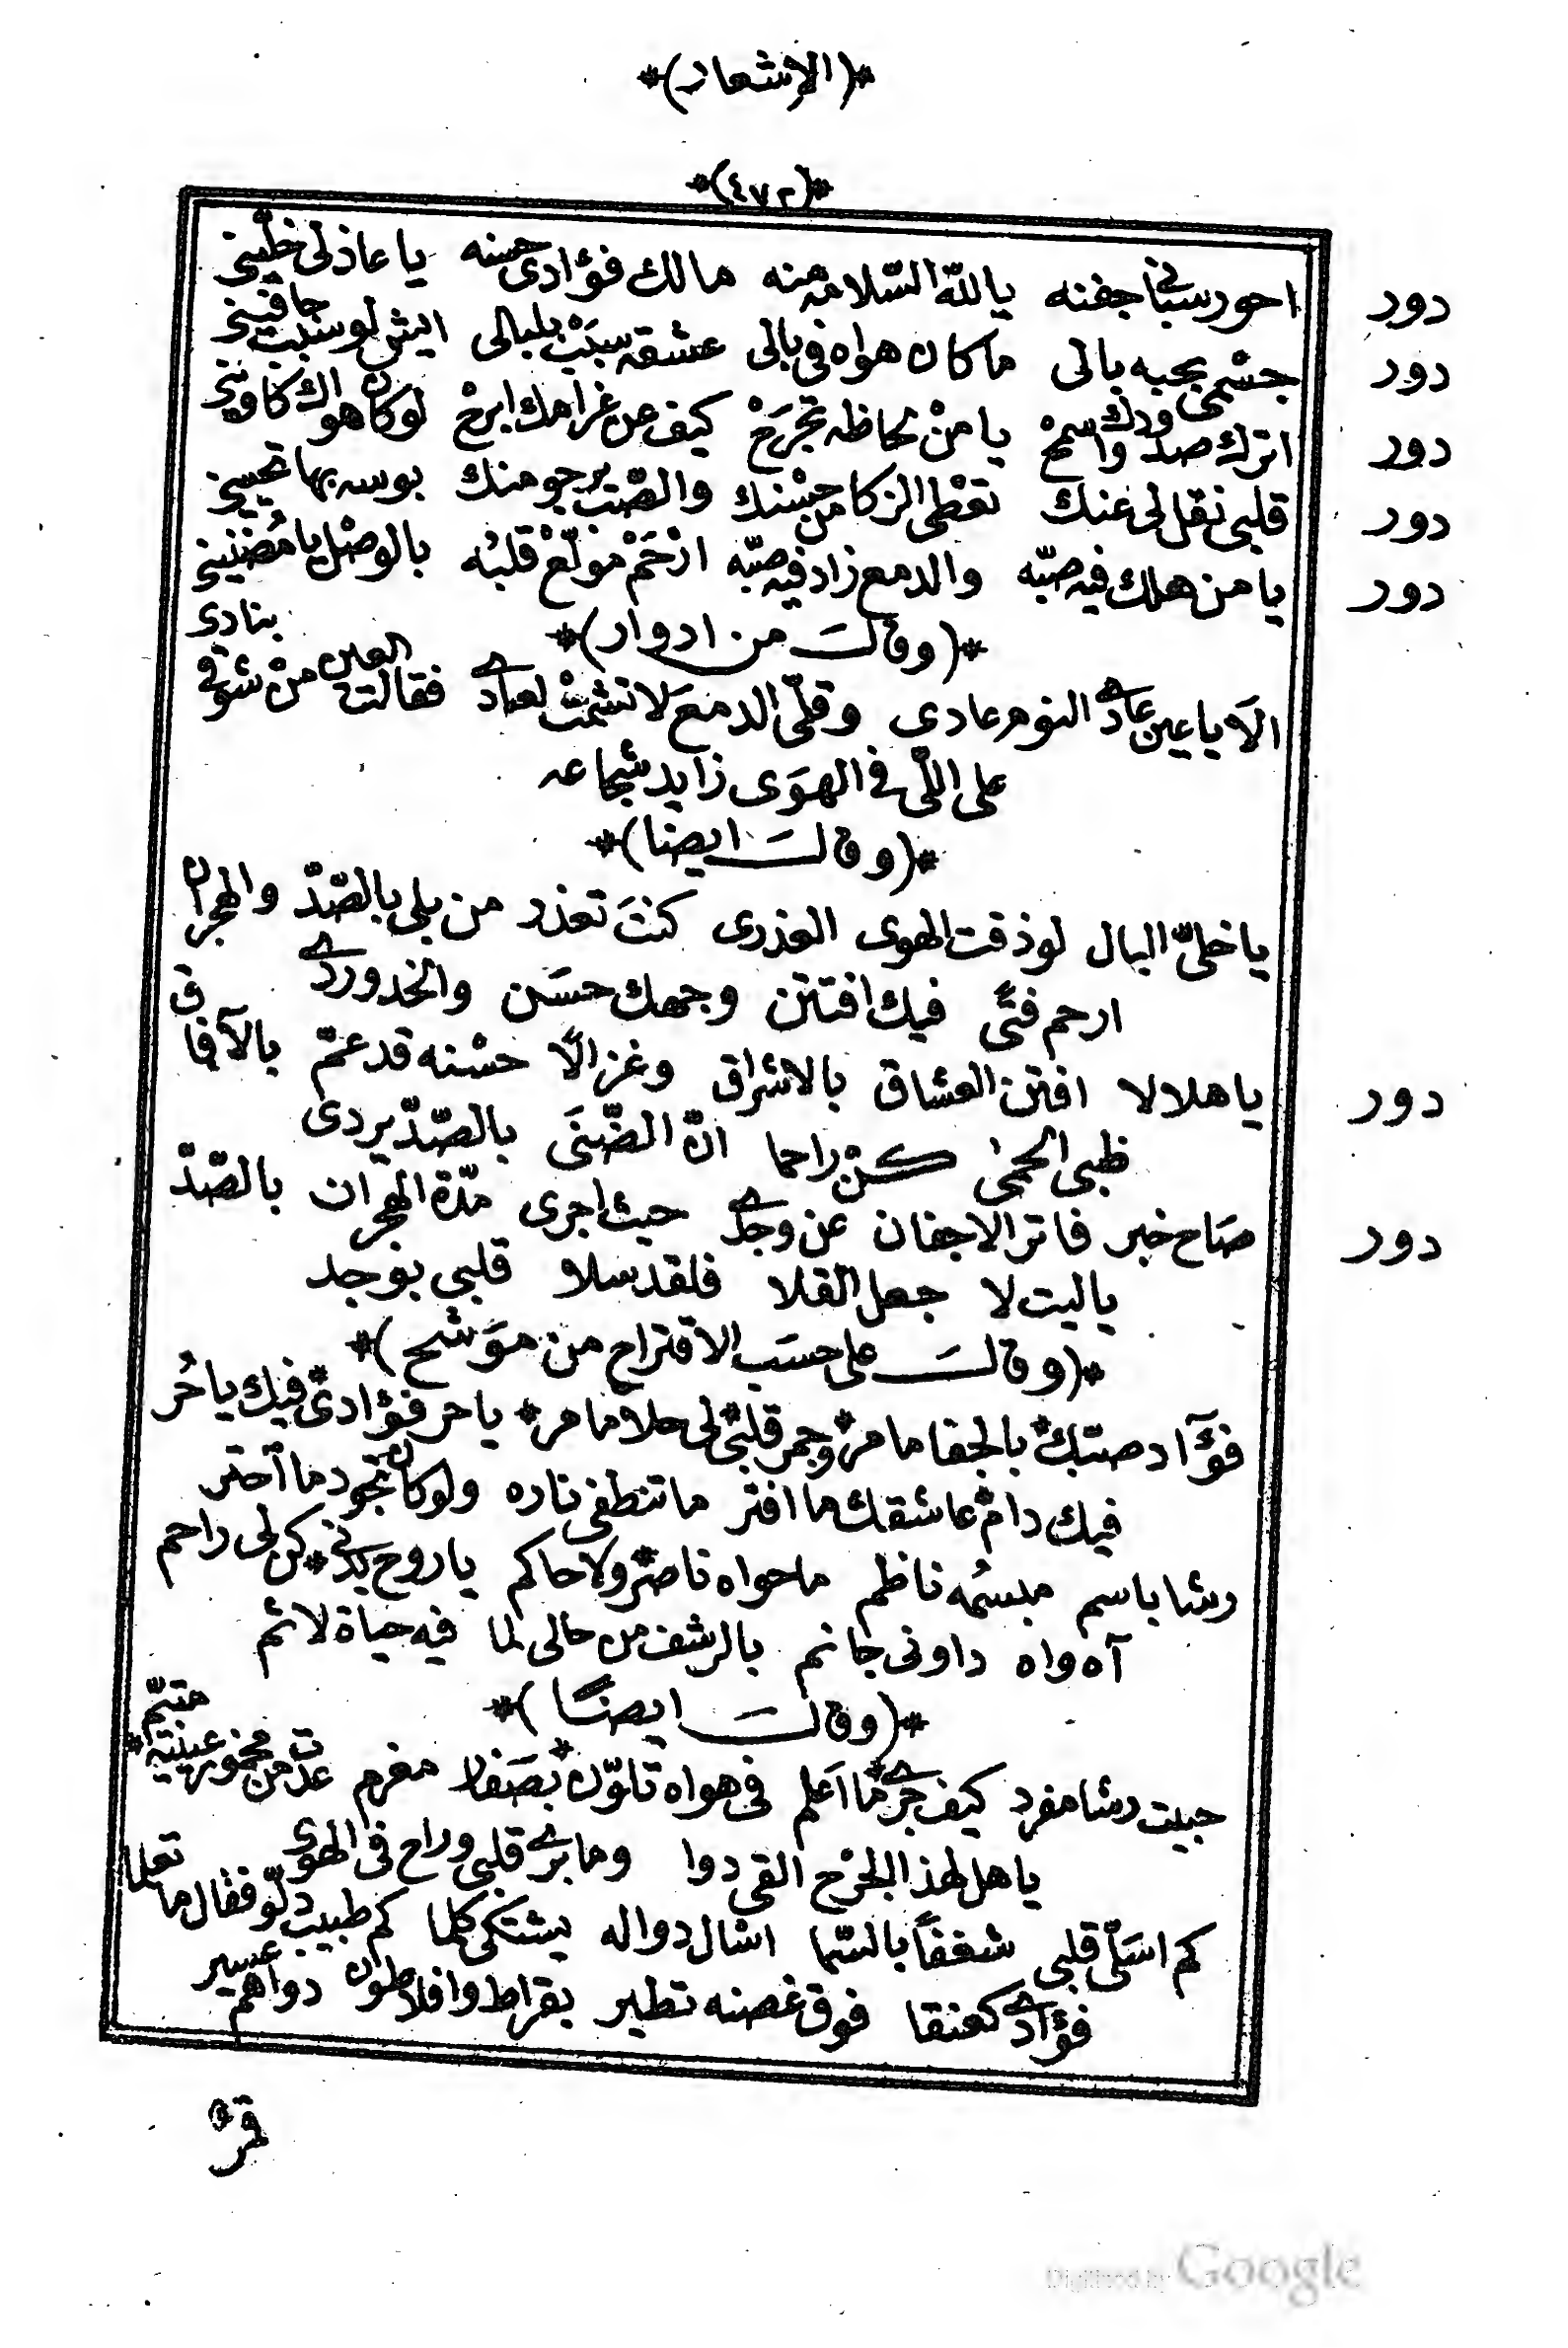 *(الاشعار)*
*(٤٧٢)*
دور احور سبانى جفنه يالله السّلامه منه مالك فؤادى حسنه ياعاذلى خلّينى
دور جسْمى بحبه بالى ماكان هواه فى بالى عشقه سبَبْ بلبالى ايش لو سبب جافينى
دور اترك صدودك واسمحْ يامنْ لحاظه تجرَحْ كيف عن غرامك ابرحْ لوكان هواك كاوينى
دور قلبى نقل لى عنك تعْطى الزكا من حسْنك والصّب يرجو منك بوسه بها تحيينى
دور يامن هلك فيه صبّه والدمع زاد فيه صبّه ارْحَمْ مولّعْ قلبُه بالوصْل يا مُضنينى
*(وقالت من ادوار)*
الَا ياعين عادى النوم عادى وقلّى الدمعَ لا تشمتْ لعادى فقالت العين منْ شوقى بنادى
على اللّى فى الهوَى زايد شجاعه
*(وقالت ايضا)*
ياخلىّ البال لوذقت الهوى العذرى كنتَ تعذر من بلى بالصّدّ والهجران
ارحم فتًى فيك افتتن وجهك حسَن والخد وردى
دور ياهلالا افتن العشاق بالاشراق وغزالًا حسْنه قد عمّ بالآفاق
ظبى الحمىٰ كنْ راحما انّ الضّنَى بالصّدّ يردى
دور صَاح خبر فاتر الاجفان عن وجدى حيث اجرى مدّة الهجران بالصّدّ
ياليت لا جعل القلا فلقد سلا قلبى بوجد
*(وقالت على حسَب الاقتراح من موَشح)*
فؤآد صبّك * بالجفا مامر * وجمر قلبى * لى حلا مامر * ياحر فؤادى * فيك ياحُر
فيك دام * عاشقك ما افتر ماتنطفى ناره ولوكان تجود ما آحتر
رشا باسم مبسمُه ناظم ماحواه ناصر * ولا حاكم ياروح بدنى * كن لى راحم
آه واه داونى جانم بالرشف من حالى لما فيه حياة لائم
*(وقالت ايضًا)*
حبيت رشا مفرد كيف جرى * ما اَعلم فى هواه تلوّن * بصَفا * مغرم عدت من مخمور عينيه * متيّم
ياهل لهذا الجرْح القى دوا ومابرى قلبى وراح فى الهوى
كم اسَلّى قلبى شغفاً بالسّما اسْال دواله يشتكى كلما كم طبيب دلّو فقال ما تعلما
فؤادى كعنقا فوق غصنه تطير بقراط وافلاطون دواهم عسير
قمر
Digitized by Google